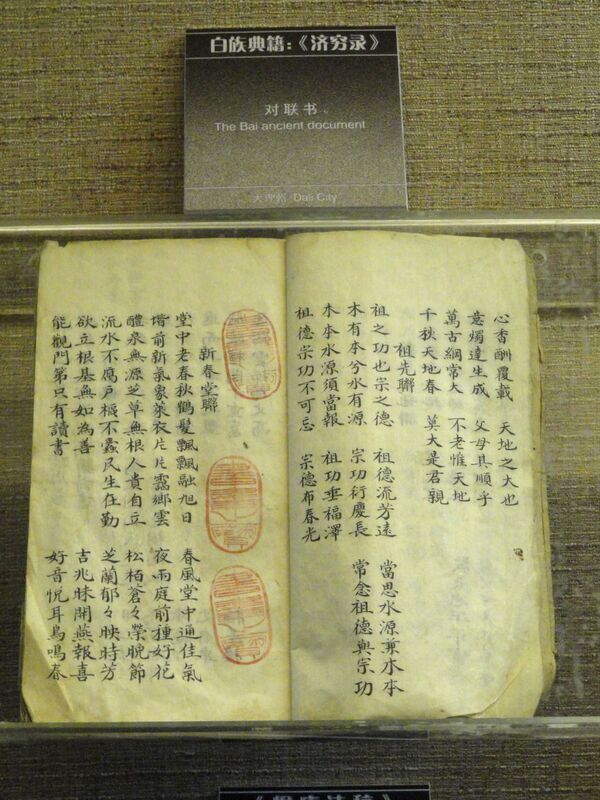 白族典籍:《济穷录》
对联书
The Bai ancient document
大理市 Dali City
心香酬覆載 天地之大也
意燭達生成 父母其順乎
萬古綱常大 不老惟天地
千秋天地春 莫大是君親
祖先聯
祖之功也宗之德 祖德流芳遠 當思水源兼水本
木有本兮水有源 宗功衍慶長 常念祖德與宗功
木本水源須當報 祖功垂福澤
祖德宗功不可忌 宗德布春光
新春堂聯
堂中老春秋鶴髮飄飄融旭日 春風堂中通佳氣
堦前新氣象萊衣片片靄鄉雲 夜雨庭前種好花
醴泉無源芝草無根人貴自立 松栢倉々榮晚節
流水不腐戸樞不蠹民生在勤 芝蘭郁々映時芳
欲立根基無如為善 吉兆昧開燕報喜
能觀門第只有讀書 好音悅耳鳥鳴春